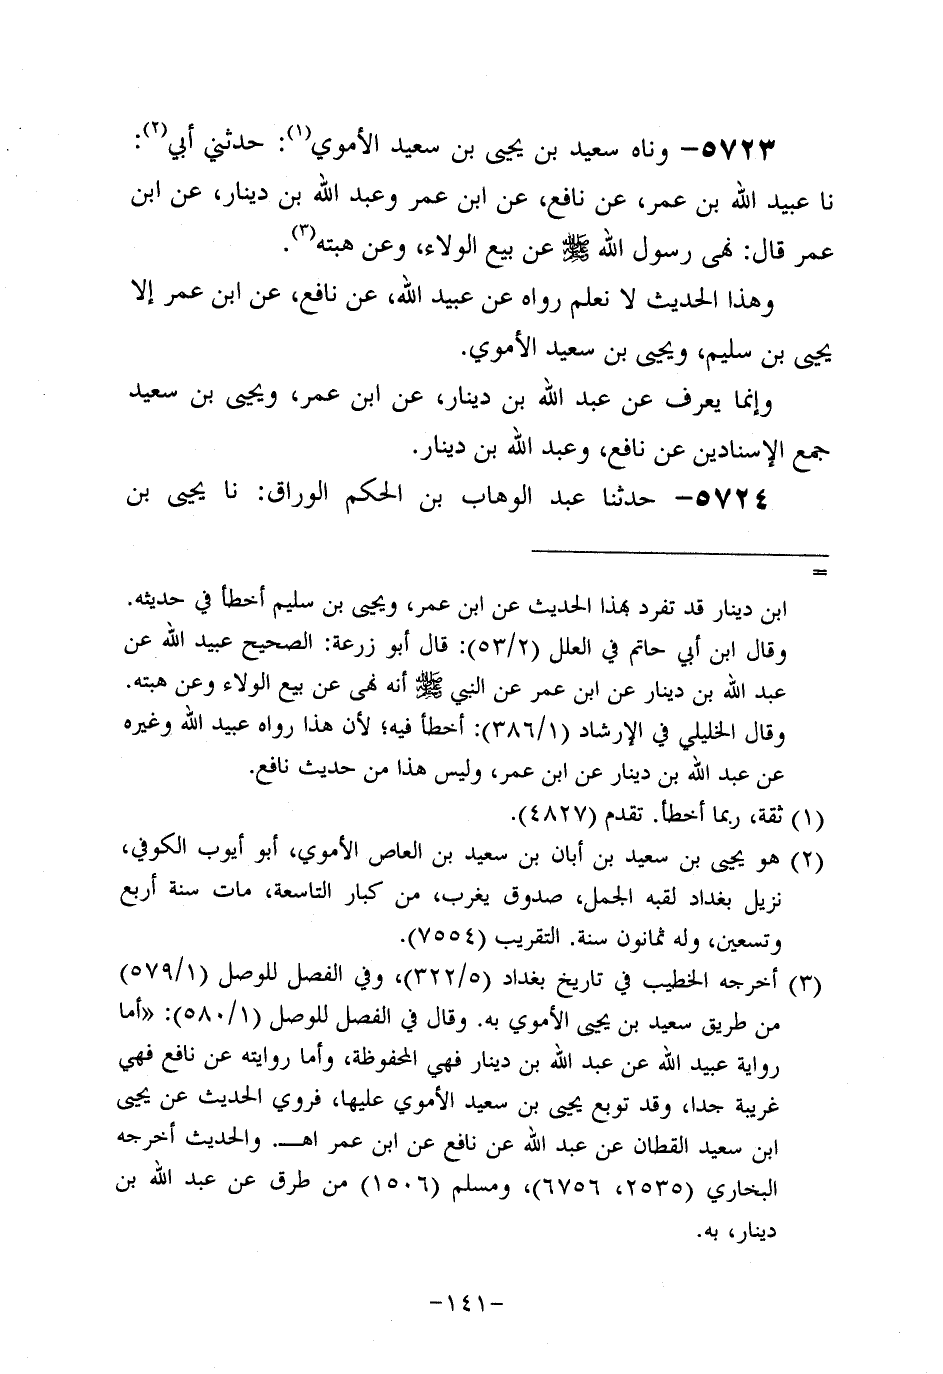 ٥٧٢٣- وناه سعيد بن يحيى بن سعيد الأموي(١): حدثني أبي(٢):
نا عبيد الله بن عمر، عن نافع، عن ابن عمر وعبد الله بن دينار، عن ابن
عمر قال: نهى رسول الله ﷺ عن بيع الولاء، وعن هبته(٣).
وهذا الحديث لا نعلم رواه عن عبيد الله، عن نافع، عن ابن عمر إلا
يحيى بن سليم، ويحيى بن سعيد الأموي.
وإنما يعرف عن عبد الله بن دينار، عن ابن عمر، ويحيى بن سعيد
جمع الإسنادين عن نافع، وعبد الله بن دينار.
٥٧٢٤- حدثنا عبد الوهاب بن الحكم الوراق: نا يحيى بن
=
ابن دينار قد تفرد بهذا الحديث عن ابن عمر، ويحيى بن سليم أخطأ في حديثه.
وقال ابن أبي حاتم في العلل (٥٣/٢): قال أبو زرعة: الصحيح عبيد الله عن
عبد الله بن دينار عن ابن عمر عن النبي ﷺ أنه نهى عن بيع الولاء وعن هبته.
وقال الخليلي في الإرشاد (٣٨٦/١): أخطأ فيه؛ لأن هذا رواه عبيد الله وغيره
عن عبد الله بن دينار عن ابن عمر، وليس هذا من حديث نافع.
(١) ثقة، ربما أخطأ. تقدم (٤٨٢٧).
(٢) هو يحيى بن سعيد بن أبان بن سعيد بن العاص الأموي، أبو أيوب الكوفي،
نزيل بغداد لقبه الجمل، صدوق يغرب، من كبار التاسعة، مات سنة أربع
وتسعين، وله ثمانون سنة. التقريب (٧٥٥٤).
(٣) أخرجه الخطيب في تاريخ بغداد (٣٢٢/٥)، وفي الفصل للوصل (٥٧٩/١)
من طريق سعيد بن يحيى الأموي به. وقال في الفصل للوصل (٥٨٠/١): «أما
رواية عبيد الله عن عبد الله بن دينار فهي المحفوظة، وأما روايته عن نافع فهي
غريبة جدا، وقد توبع يحيى بن سعيد الأموي عليها، فروي الحديث عن يحيى
ابن سعيد القطان عن عبد الله عن نافع عن ابن عمر اهـــ. والحديث أخرجه
البخاري (٢٥٣٥، ٦٧٥٦)، ومسلم (١٥٠٦) من طرق عن عبد الله بن
دينار، به.
-١٤١-